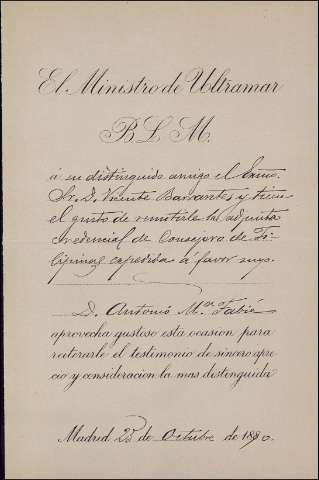 El Ministro de Ultramar
B. L. M.
á su distinguido amigo el Excmo.
Sr. D. Vicente Barrantes y tiene
el gusto de remitirle la adjunta
credencial de Consejero de Fi-
lipinas expedida á favor suyo.
D. Antonio Mª Fabié
aprovecha gustoso esta ocasion para
reiterarle el testimonio de sincero apre
cio y consideracion la mas distinguida
Madrid 25 de Octubre de 1890.